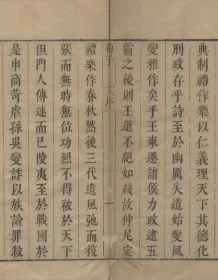 典制禮作樂以仁義理天下其德化
刑政存乎詩至於幽厲失道始變風
變雅作矣平王東遷諸侯力政逮五
霸之後則王道不絶如綫故仲尼定
荀子 序
禮樂作春秋然後三代遺風弛而復
張而無時無位功烈不得被於天下
但門人傳述而已陵夷至於戰國於
是申商苛虐孫吳變詐以族論罪殺